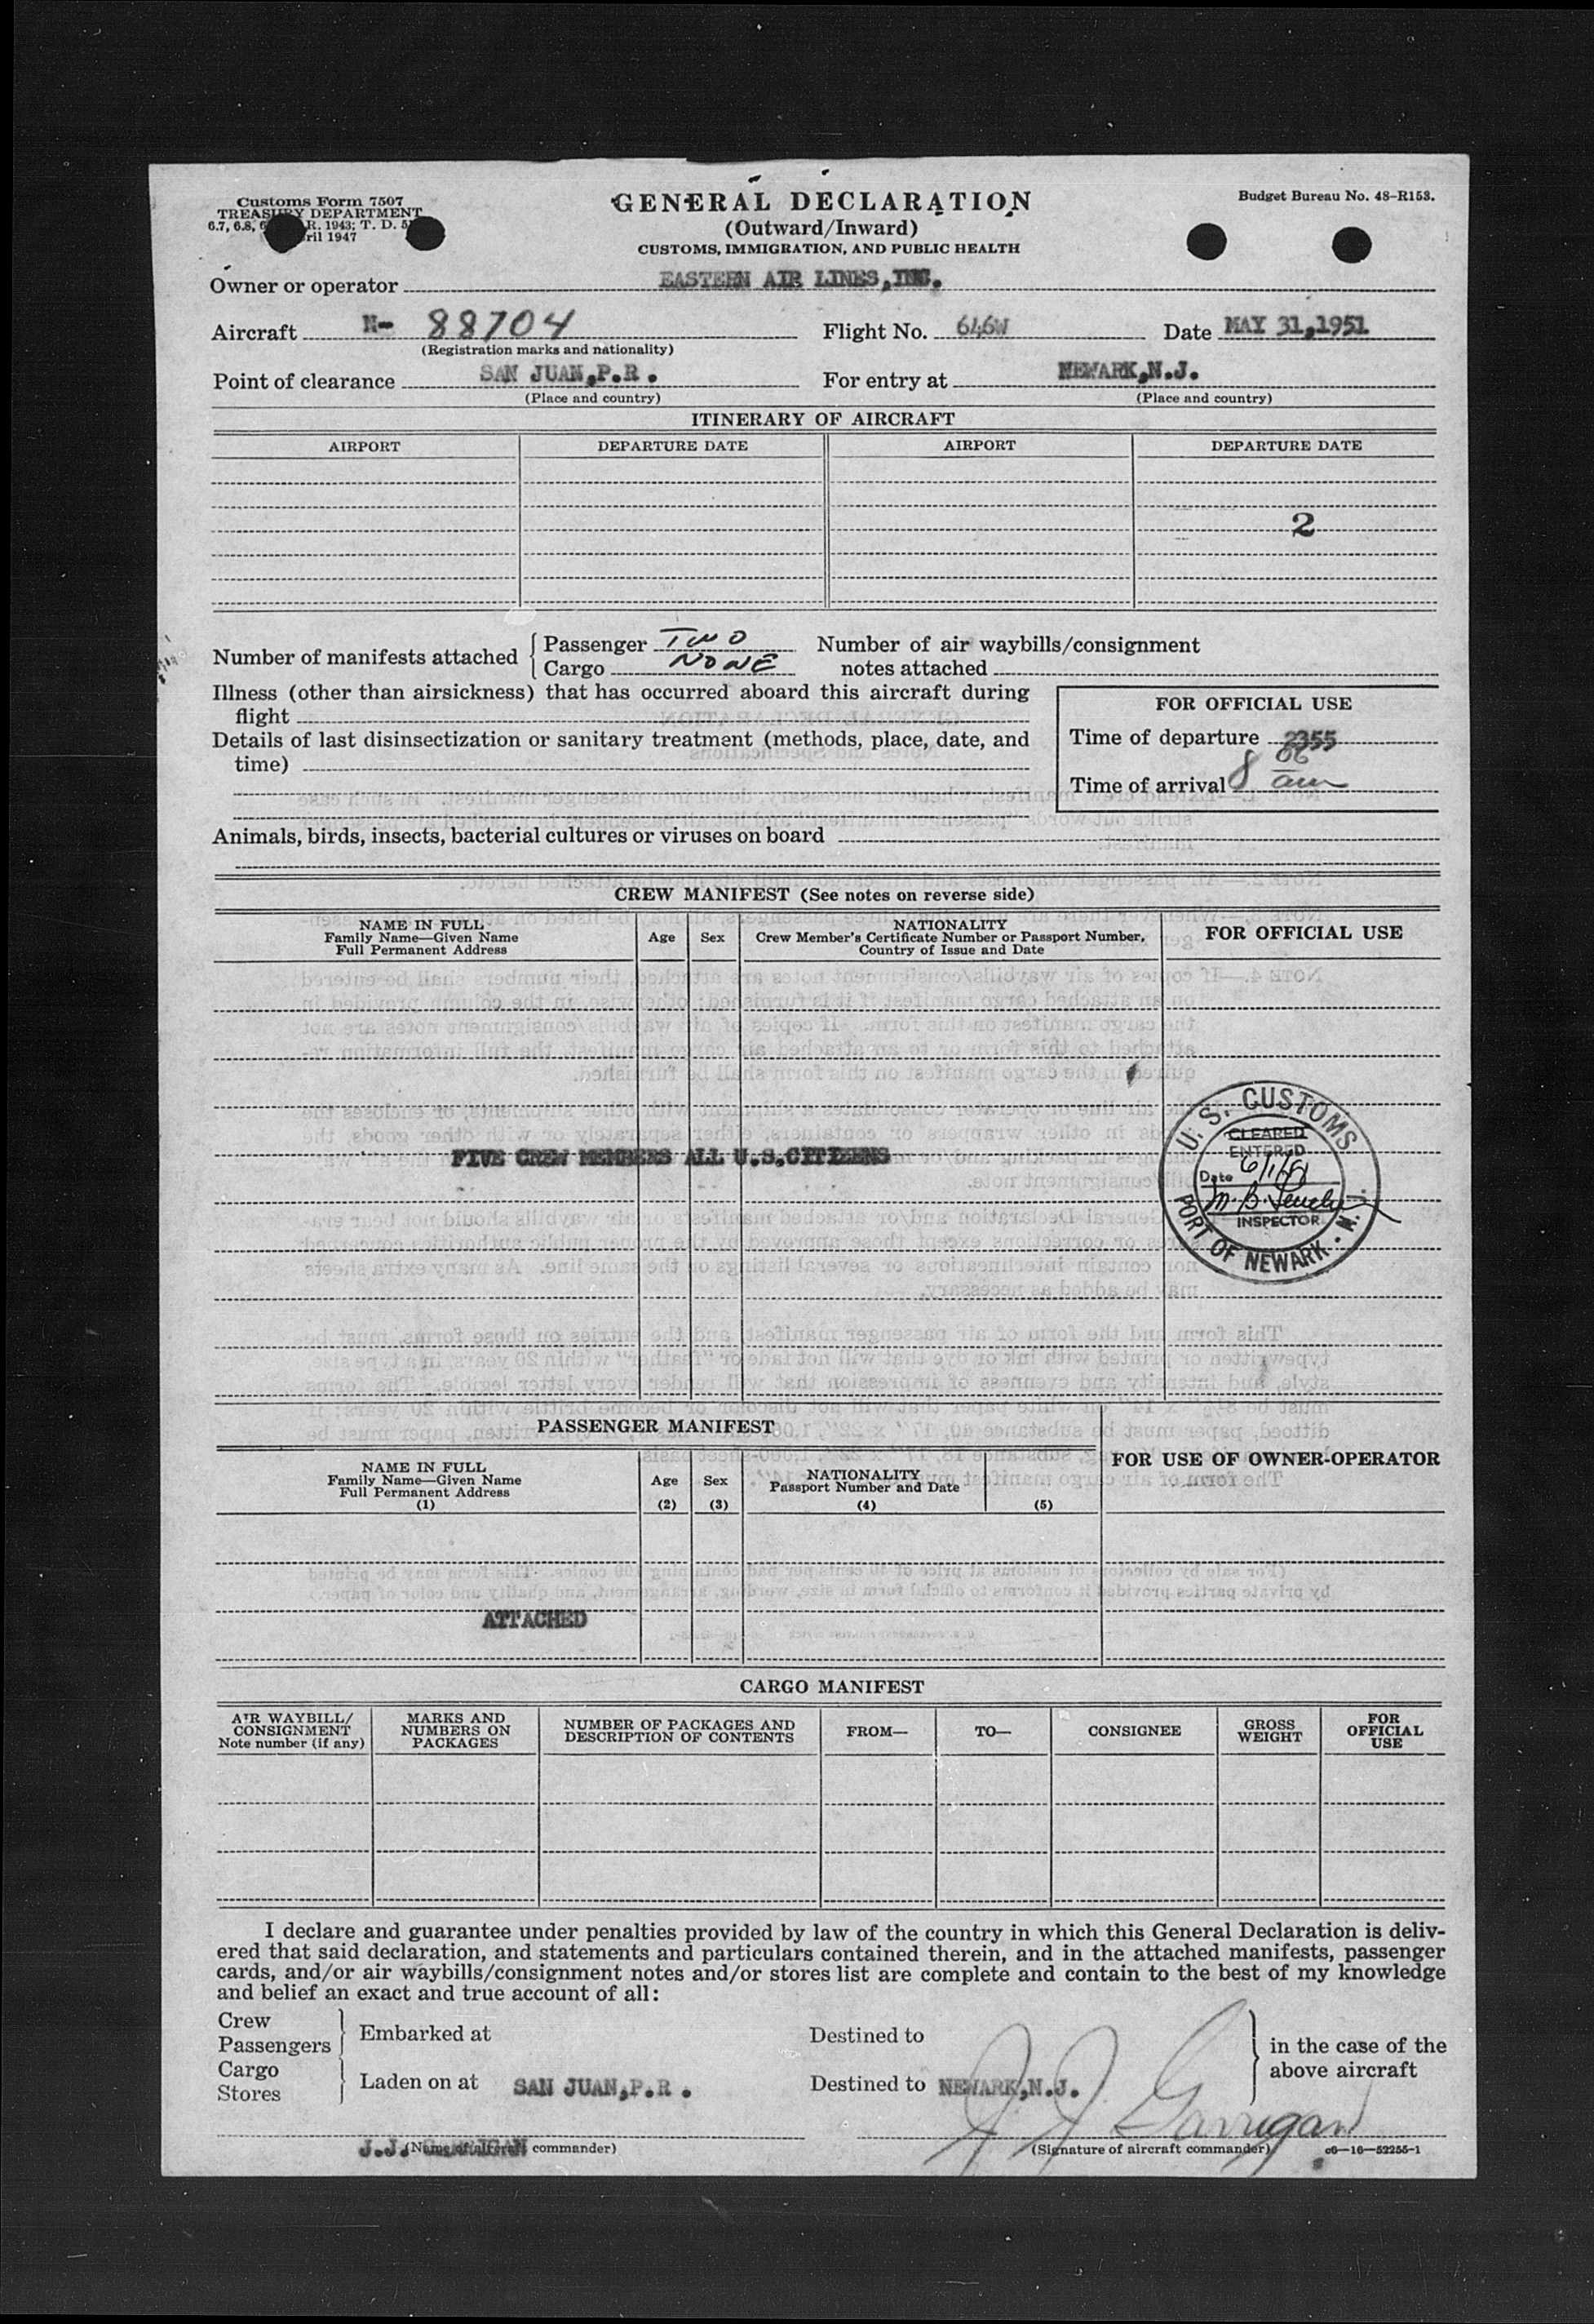 Customs Form 7507
TREASURY DEPARTMENT
6.7, 6.8, R. 1943; T. D.
ril 1947
GENERAL DECLARATION
(Outward/Inward)
CUSTOMS, IMMIGRATION, AND PUBLIC HEALTH
Budget Bureau No. 48-R153.
Owner or operator EASTERN AIR LINES,INC.
Aircraft N- 88704 Flight No. 646W Date MAY 31,1951
(Registration marks and nationality)
Point of clearance SAN JUAN,P.R. For entry at NEWARK,N.J.
(Place and country) (Place and country)
ITINERARY OF AIRCRAFT
AIRPORT DEPARTURE DATE AIRPORT DEPARTURE DATE
2
Number of manifests attached { Passenger TWO
Cargo NONE
Number of air waybills/consignment
notes attached
Illness (other than airsickness) that has occurred aboard this aircraft during
flight
Details of last disinsectization or sanitary treatment (methods, place, date, and
time)
FOR OFFICIAL USE
Time of departure 2355
Time of arrival 8 06 am
Animals, birds, insects, bacterial cultures or viruses on board
CREW MANIFEST (See notes on reverse side)
NAME IN FULL
Family Name—Given Name
Full Permanent Address
Age
Sex
NATIONALITY
Crew Member's Certificate Number or Passport Number,
Country of Issue and Date
FOR OFFICIAL USE
FIVE CREW MEMBERS ALL U.S.CITIZENS
U. S. CUSTOMS
CLEARED
ENTERED
Date 6/1/51
M. B.
INSPECTOR
PORT OF NEWARK · N. J.
PASSENGER MANIFEST
NAME IN FULL
Family Name—Given Name
Full Permanent Address
(1)
Age
(2)
Sex
(3)
NATIONALITY
Passport Number and Date
(4)
(5)
FOR USE OF OWNER-OPERATOR
ATTACHED
CARGO MANIFEST
AIR WAYBILL/
CONSIGNMENT
Note number (if any)
MARKS AND
NUMBERS ON
PACKAGES
NUMBER OF PACKAGES AND
DESCRIPTION OF CONTENTS
FROM—
TO—
CONSIGNEE
GROSS
WEIGHT
FOR
OFFICIAL
USE
I declare and guarantee under penalties provided by law of the country in which this General Declaration is deliv-
ered that said declaration, and statements and particulars contained therein, and in the attached manifests, passenger
cards, and/or air waybills/consignment notes and/or stores list are complete and contain to the best of my knowledge
and belief an exact and true account of all:
Crew
Passengers
Embarked at
Destined to
Cargo
Stores
Laden on at SAN JUAN,P.R.
Destined to NEWARK,N.J.
in the case of the
above aircraft
J.J. GARRIGAN
(Name of aircraft commander)
J. J. Garrigan
(Signature of aircraft commander)
c6—16—52255-1